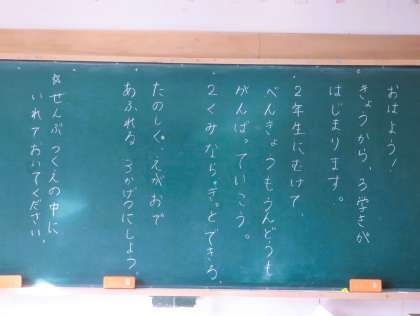 おはよう！
きょうから、3学きが
はじまります。
2年生にむけて、
べんきょうもうんどうも
がんばっていこう。
2くみなら、きっとできる。
たのしく、えがおで
あふれる 3かげつにしよう。
☆ぜんぶ つくえの中に
いれておいてください。